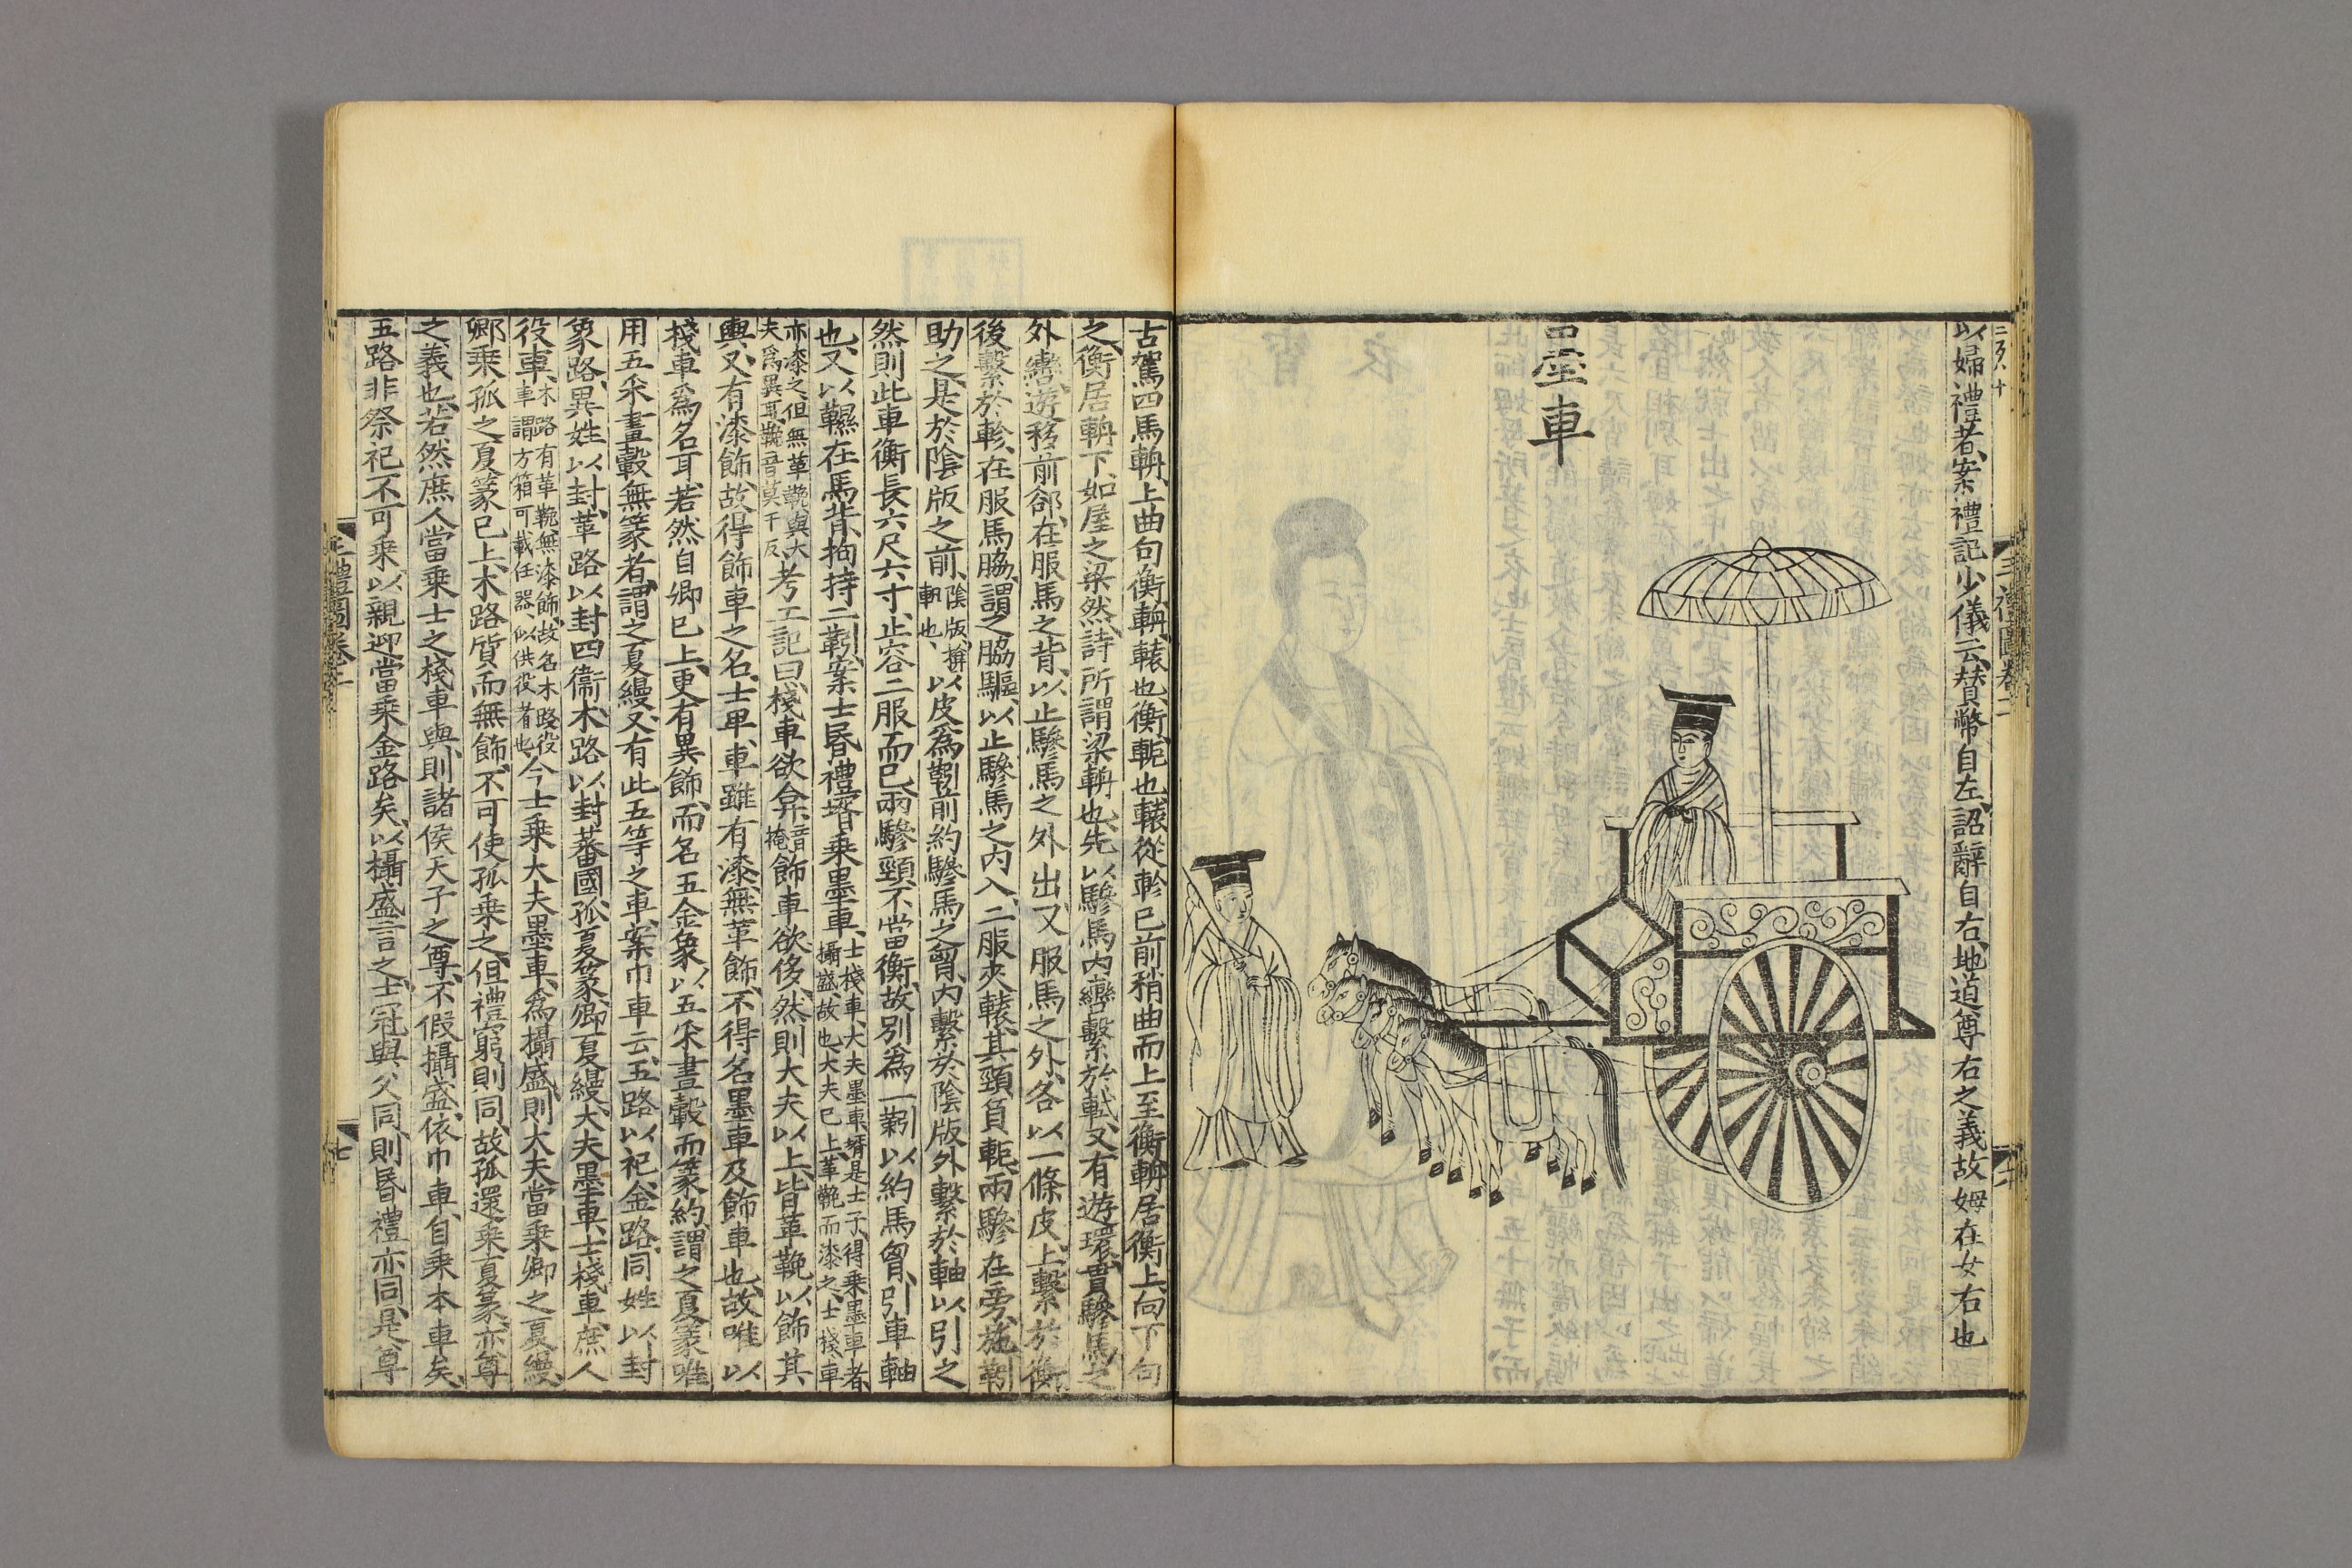 以婦禮者案禮記少儀云贊幣自左詔辭自右地道尊右之義故姆在女右也
墨車
古駕四馬輈上曲句衡輈轅也衡軛也轅從軫已前稍曲而上至衡輈居衡上向下句
之衡居輈下如屋之梁然詩所謂梁輈也先以驂馬內轡繫於軾又有遊環貫驂馬之
外轡遊移前郤在服馬之背以止驂馬之外出又服馬之外各以一條皮上繫於衡
後繫於軫在服馬脇謂之脇驅以止驂馬之內入二服夾轅其頸負軛兩驂在旁施靷
助之是於陰版之前陰版揜軓也以皮為靷前約驂馬之胷內繫於陰版外繫於軸以引之
然則此車衡長六尺六寸止容二服而已兩驂頸不當衡故別為一靷以約馬胷引車軸
也又以韅在馬背拘持二靷案士昏禮壻乘墨車士棧車大夫墨車壻是士子得乘墨車者攝盛故也大夫已上革鞔而漆之士棧車
亦漆之但無革鞔與大夫為異耳鞔音莫干反考工記曰棧車欲弇音掩飾車欲侈然則大夫以上皆革鞔以飾其
輿又有漆飾故得飾車之名士卑車雖有漆無革飾不得名墨車及飾車也故唯以
棧車為名耳若然自卿已上更有異飾而名五金象以五采畫轂而篆約謂之夏篆唯
用五采畫轂無篆者謂之夏縵又有此五等之車案巾車云五路以祀金路同姓以封
象路異姓以封革路以封四衛木路以封蕃國孤夏篆卿夏縵大夫墨車士棧車庶人
役車木路有革鞔無漆飾故名木路役車謂方箱可載任器似供役者也今士乘大夫墨車為攝盛則大夫當乘卿之夏縵
卿乘孤之夏篆已上木路質而無飾不可使孤乘之但禮窮則同故孤還乘夏篆亦尊
之義也若然庶人當乘士之棧車與則諸侯天子之尊不假攝盛依巾車自乘本車矣
五路非祭祀不可乘以親迎當乘金路矣以攝盛言之士冠與父同則昏禮亦同是尊
三禮圖卷二
七